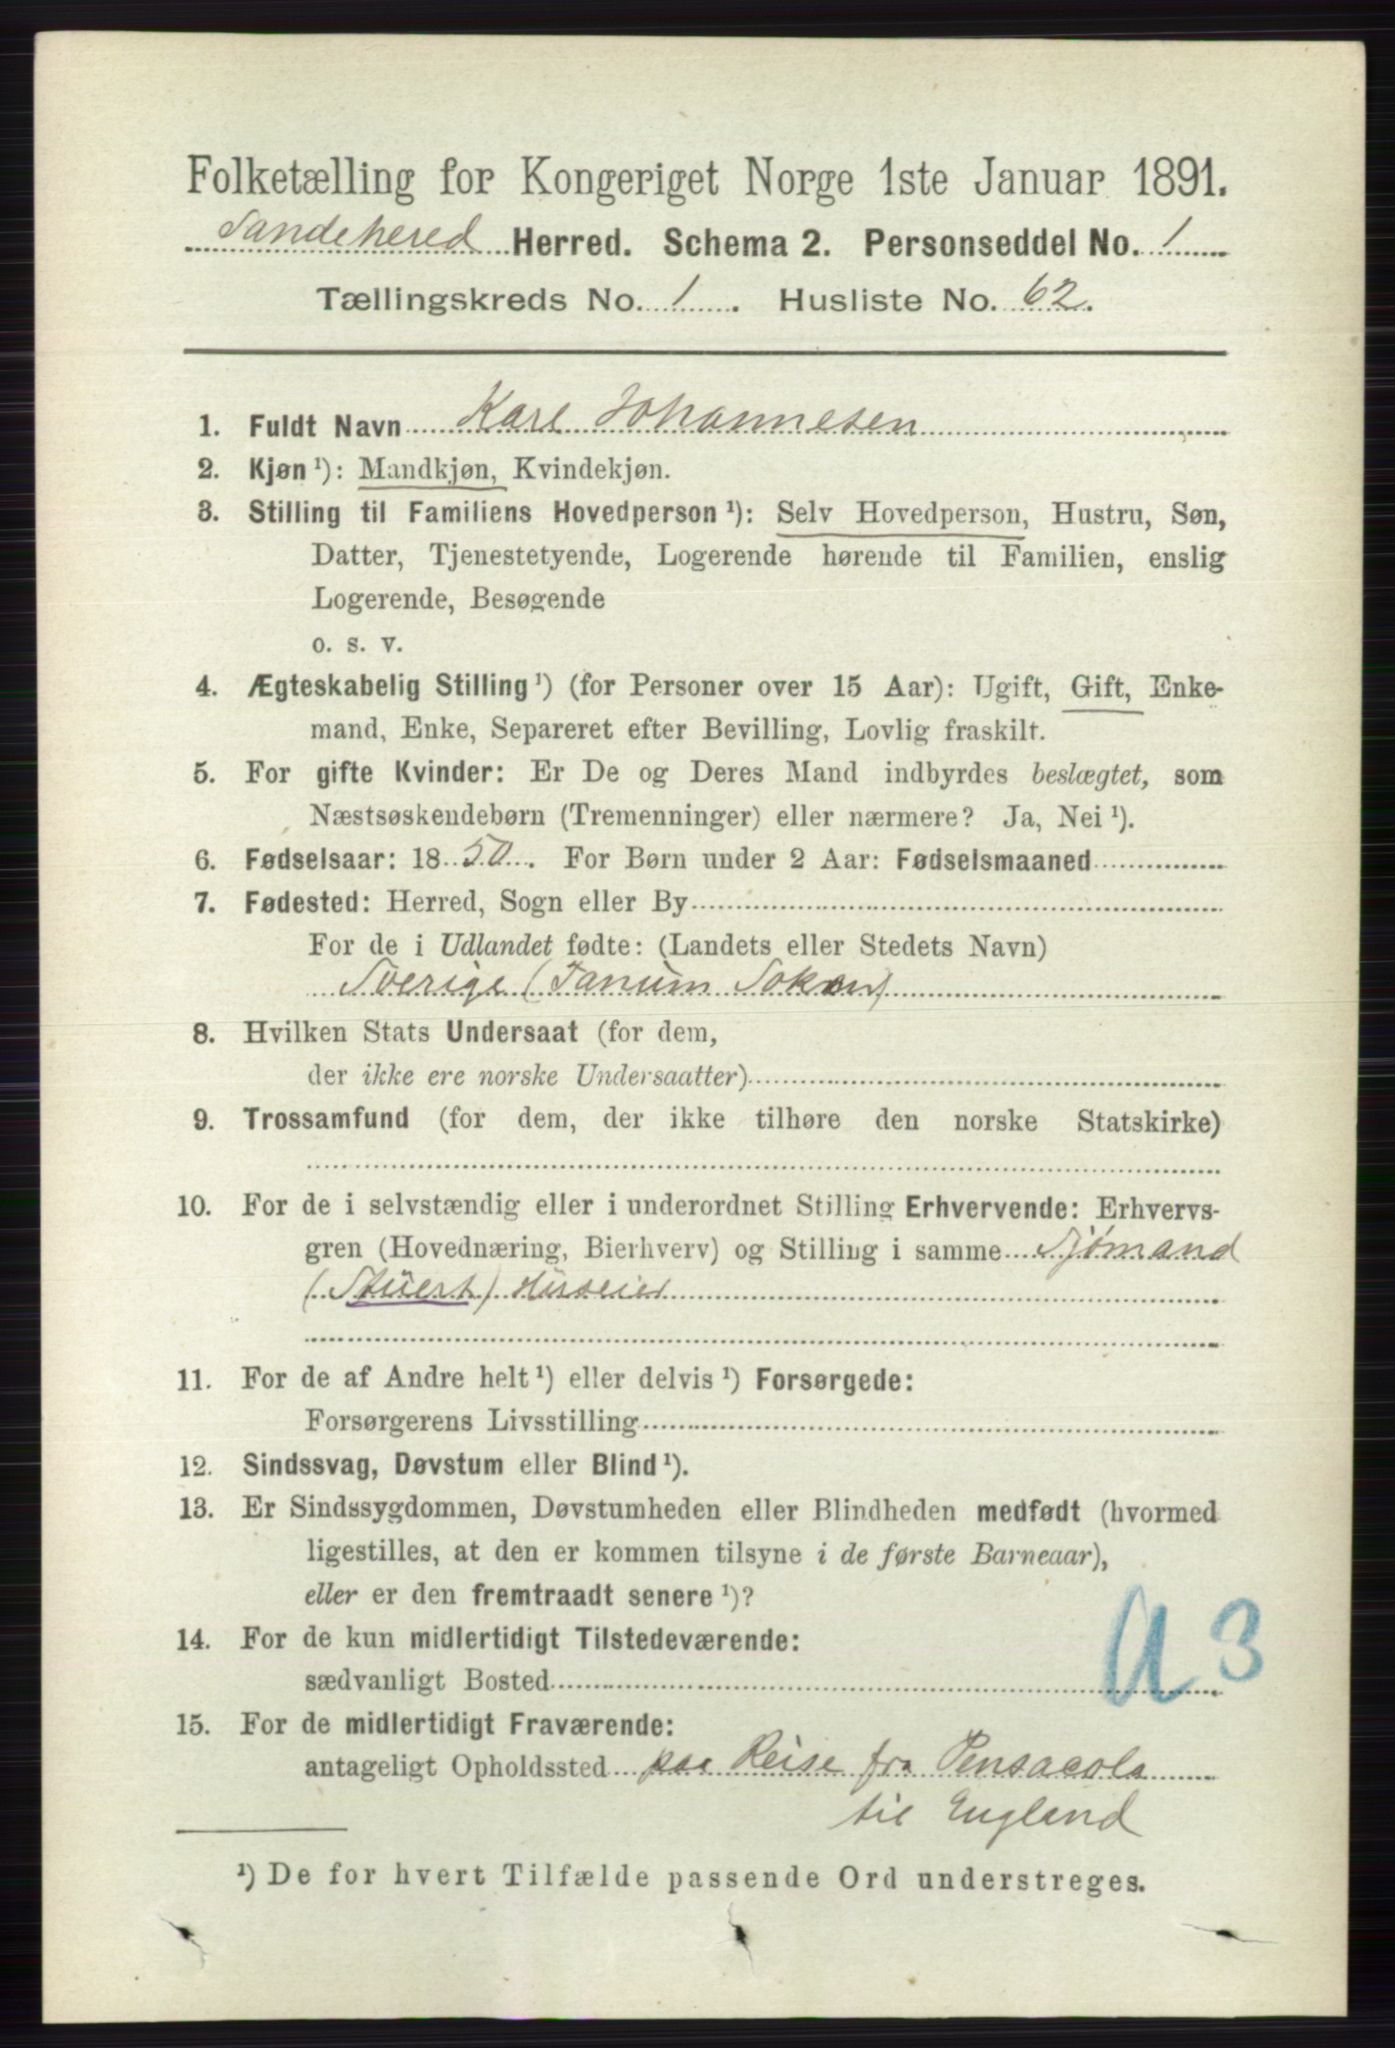 Folketælling for Kongeriget Norge 1ste Januar 1891.
Sandehered Herred. Schema 2. Personseddel No. 1
Tællingskreds No. 1. Husliste No. 62.
1. Fuldt Navn Karl Johannesen
2. Kjøn ¹): Mandkjøn, Kvindekjøn.
3. Stilling til Familiens Hovedperson ¹): Selv Hovedperson, Hustru, Søn,
Datter, Tjenestetyende, Logerende hørende til Familien, enslig
Logerende, Besøgende
o. s. v.
4. Ægteskabelig Stilling ¹) (for Personer over 15 Aar): Ugift, Gift, Enke-
mand, Enke, Separeret efter Bevilling, Lovlig fraskilt.
5. For gifte Kvinder: Er De og Deres Mand indbyrdes beslægtet, som
Næstsøskendebørn (Tremenninger) eller nærmere? Ja, Nei ¹).
6. Fødselsaar: 1850. For Børn under 2 Aar: Fødselsmaaned
7. Fødested: Herred, Sogn eller By
For de i Udlandet fødte: (Landets eller Stedets Navn)
Sverige (Tanum Soken)
8. Hvilken Stats Undersaat (for dem,
der ikke ere norske Undersaatter)
9. Trossamfund (for dem, der ikke tilhøre den norske Statskirke)
10. For de i selvstændig eller i underordnet Stilling Erhvervende: Erhvervs-
gren (Hovednæring, Bierhverv) og Stilling i samme Sjømand
(Stüert) Huseier
11. For de af Andre helt ¹) eller delvis ¹) Forsørgede:
Forsørgerens Livsstilling
12. Sindssvag, Døvstum eller Blind ¹).
13. Er Sindssygdommen, Døvstumheden eller Blindheden medfødt (hvormed
ligestilles, at den er kommen tilsyne i de første Barneaar),
eller er den fremtraadt senere ¹)?
14. For de kun midlertidigt Tilstedeværende:
sædvanligt Bosted
a 3
15. For de midlertidigt Fraværende:
antageligt Opholdssted paa Reise fra Pensacola
til England
¹) De for hvert Tilfælde passende Ord understreges.